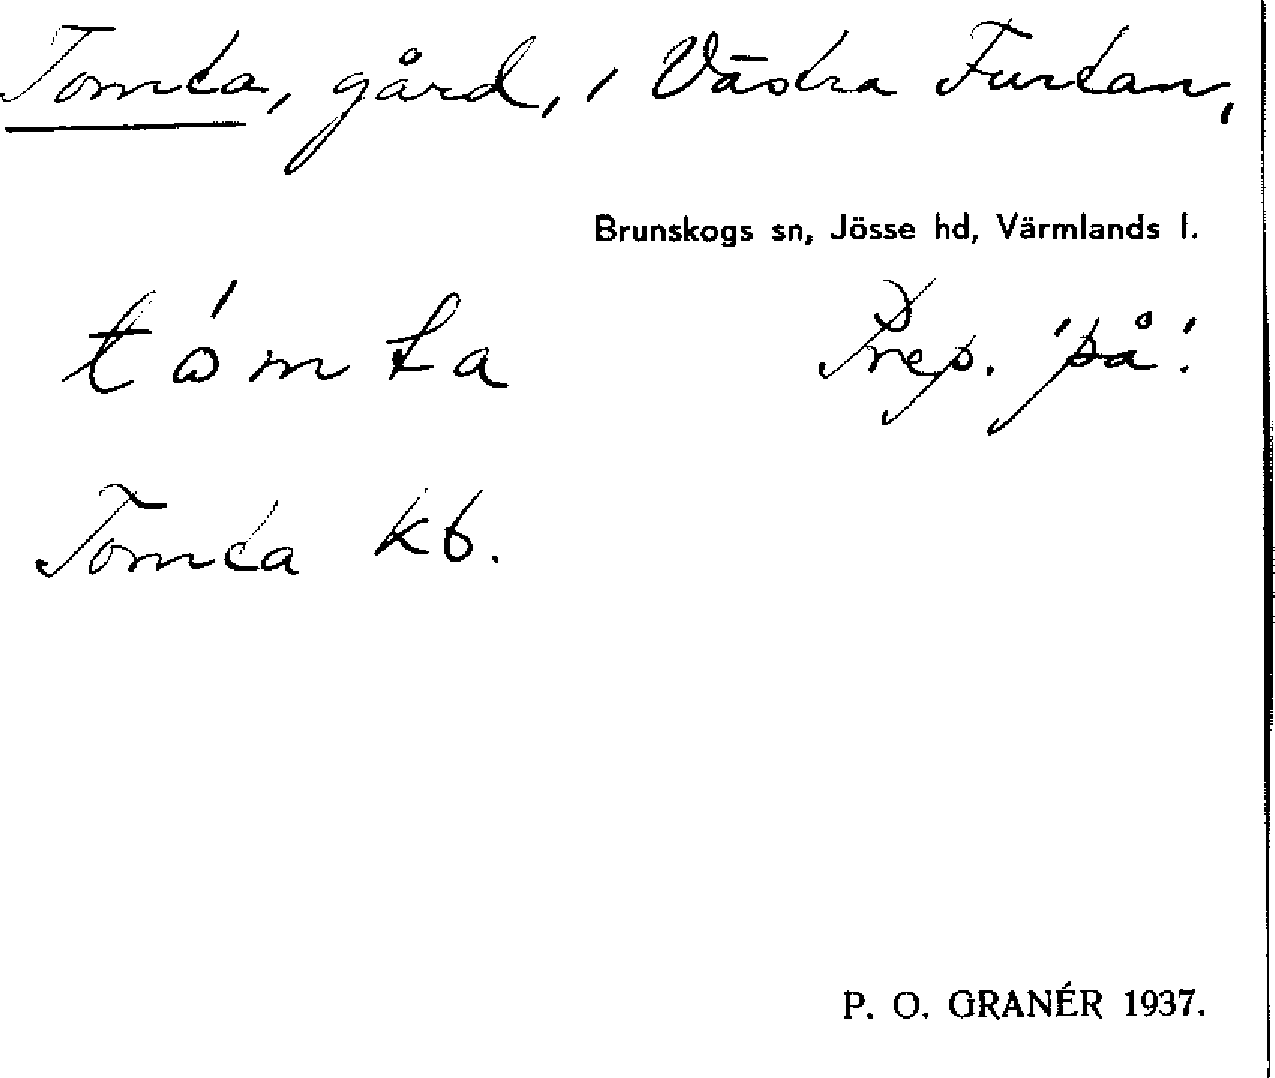 Tomta, gård, i Västra Furtan,
Brunskogs sn, Jösse hd, Värmlands l.
tómta Prep. 'på'.
Tomta kb.
P. O. GRANÉR 1937.